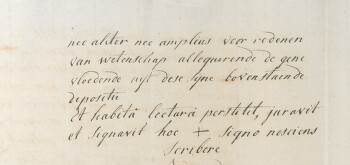 nec aliter nec amplius voor redenen
van wetenschap allegueerende de gene
vloedende uyt dese syne bovenstaende
depositie
Et habitâ lecturâ perstitit, juravit
et signavit hoc + signo nesciens
scribere